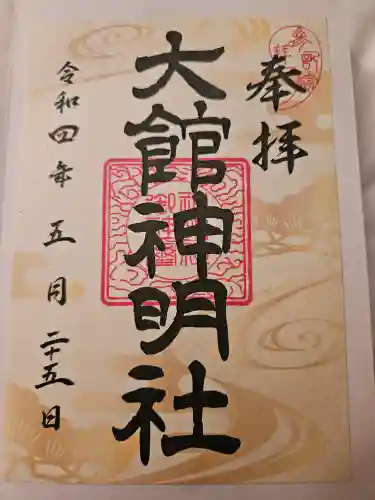 奉拝
大館神明社
令和四年 五月 二十五日